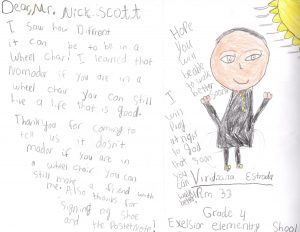 Dear, Mr. Nick Scott
I saw how Different
it can be to be in a
wheel chair I learned that
nomader if you are in a
wheel chair you can still
live a life that is good.
Thank you for coming to
tell us it dosn't
mader if you are in
a wheel chair you can
still make a friend with
me. Also thanks for
signing my shoe
and the Postet Note!
Hope
you
will
be able
to walk
better
soon
I
will
Pray
at night
to god
that
you
can
walk
Viridiana Estrada
Rm 33
Grade 4
Exelsior elementry Shool